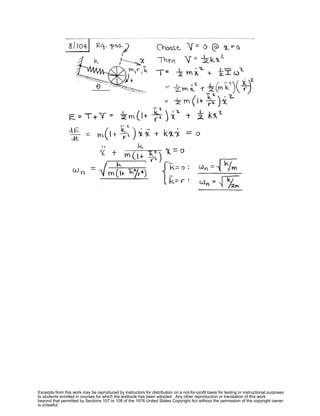 8/104 Eq. pos. Choose V = 0 @ x = 0
k x Then V = ½ kx²
m, r, k̄ T = ½ mẋ² + ½ I̅ ω²
θ + = ½ mẋ² + ½ (mk̄²)(ẋ/r)²
= ½ m(1 + k̄²/r²)ẋ²
E = T + V = ½ m(1 + k̄²/r²)ẋ² + ½ kx²
dE/dt = m(1 + k̄²/r²)ẋẍ + kxẋ = 0
ẍ + k/(m(1 + k̄²/r²)) x = 0
ωn = √(k/(m(1 + k̄²/r²))) { k̄=0 : ωn = √(k/m)
k̄=r : ωn = √(k/2m)
Excerpts from this work may be reproduced by instructors for distribution on a not-for-profit basis for testing or instructional purposes
to students enrolled in courses for which the textbook has been adopted. Any other reproduction or translation of this work
beyond that permitted by Sections 107 or 108 of the 1976 United States Copyright Act without the permission of the copyright owner
is unlawful.